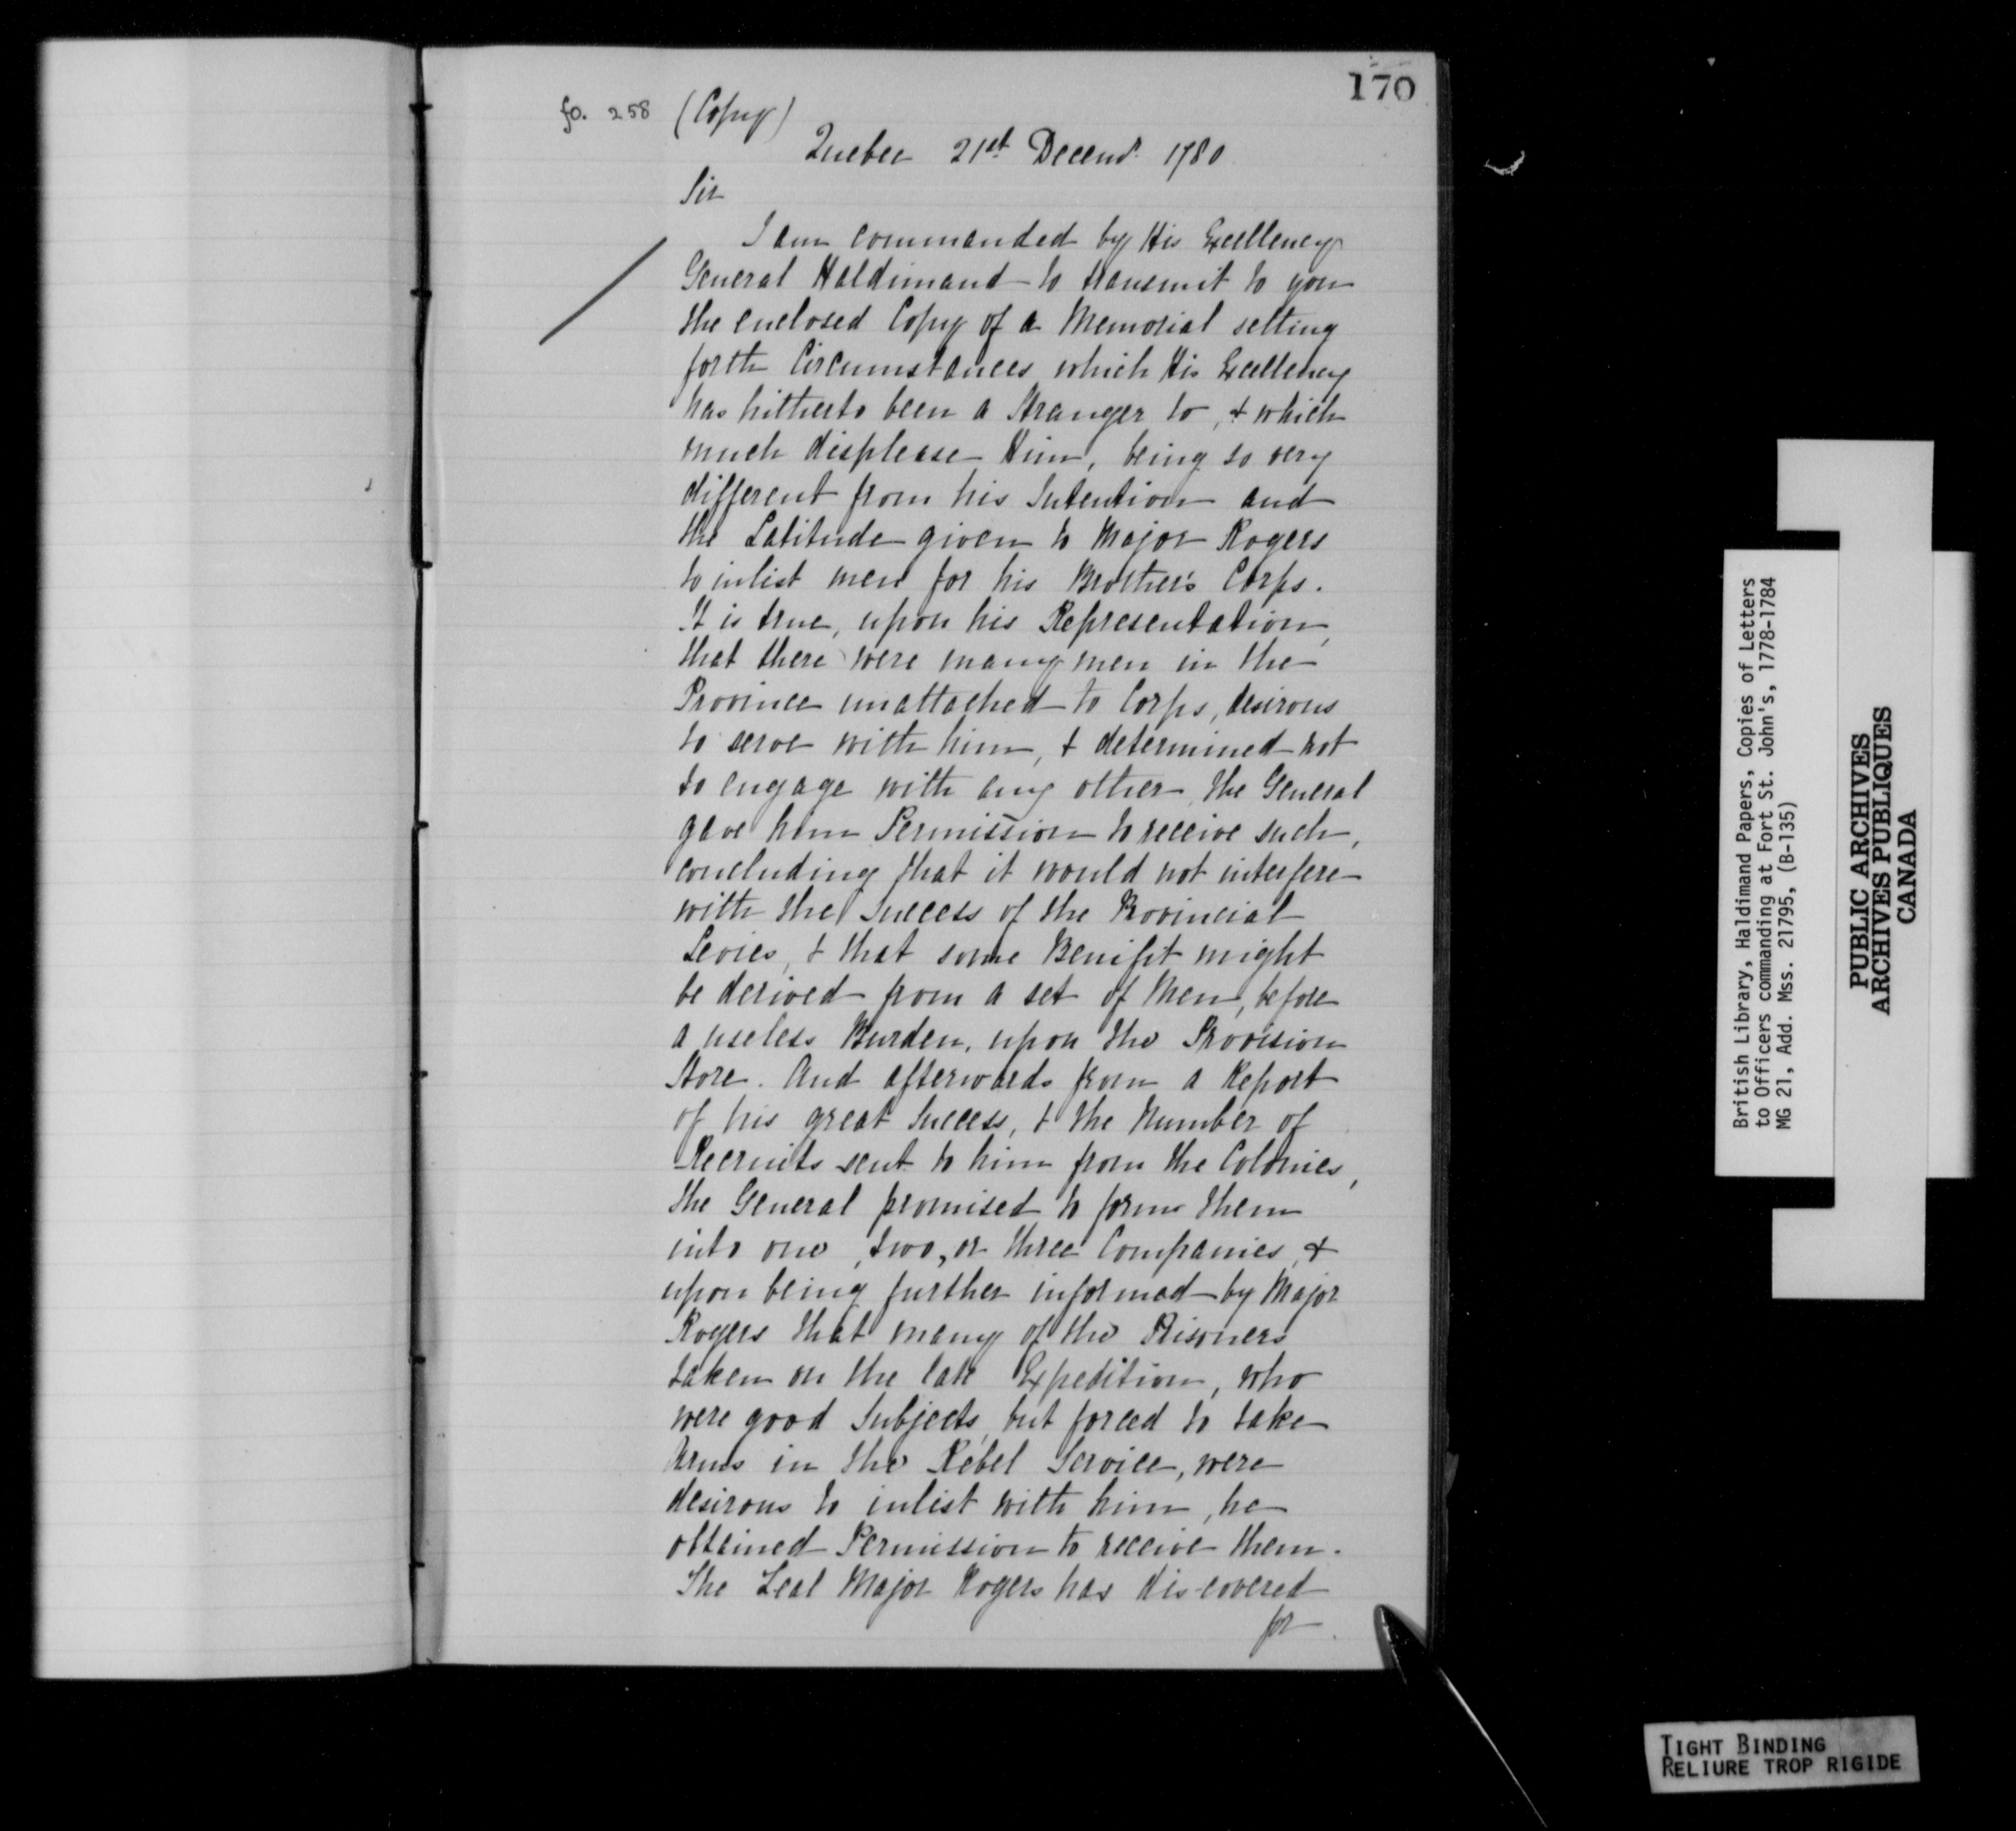 170
fo. 258 (Copy)
Quebec 21st Decemr. 1780
Sir
I am commanded by His Excellency
General Haldimand to transmit to you
the enclosed Copy of a Memorial setting
forth Circumstances which His Excellency
has hitherto been a Stranger to, & which
much displease Him, being so very
different from his Intention and
the Latitude given to Major Rogers
to inlist men for his Brother's Corps.
It is true, upon his Representation,
that there were many men in the
Province unattached to Corps, desirous
to serve with him, & determined not
to engage with any other, the General
gave him Permission to receive such,
concluding that it would not interfere
with the Success of the Provincial
Levies, & that some Benifit might
be derived from a set of Men, before
a useless Burden, upon the Provision
Store. And afterwards from a Report
of his great Success, & the Number of
Recruits sent to him from the Colonies,
the General promised to form them
into one, two, or three Companies, &
upon being further informed by Major
Rogers that many of the Prisoners
taken on the late Expedition, who
were good Subjects, but forced to take
Arms in the Rebel Service, were
desirous to inlist with him, he
obtained Permission to receive them.
The Zeal Major Rogers has discovered
for
British Library, Haldimand Papers, Copies of Letters
to Officers commanding at Fort St. John's, 1778-1784
MG 21, Add. Mss. 21795, (B-135)
PUBLIC ARCHIVES
ARCHIVES PUBLIQUES
CANADA
TIGHT BINDING
RELIURE TROP RIGIDE